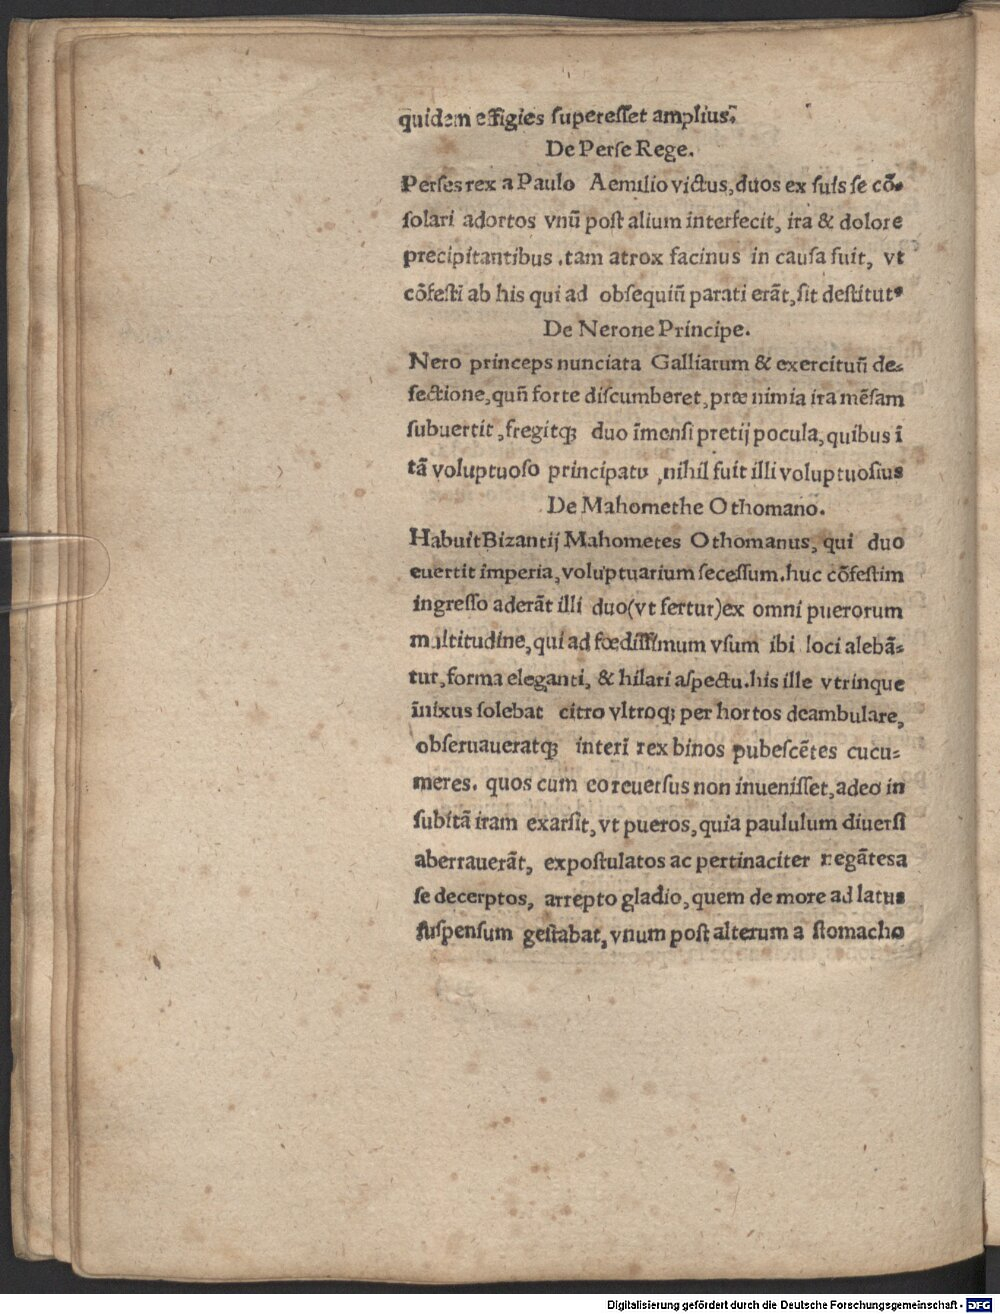 quidem effigies superesset amplius.
De Perse Rege.
Perses rex a Paulo Aemilio victus, duos ex suis se cõ-
solari adortos vnũ post alium interfecit, ira & dolore
precipitantibus .tam atrox facinus in causa fuit, vt
cõfestĩ ab his qui ad obsequiũ parati erãt, sit destitutꝰ
De Nerone Principe.
Nero princeps nunciata Galliarum & exercituũ de-
fectione, quũ forte discumberet, præ nimia ira mẽsam
subuertit, fregitqꝫ duo ĩmensi pretij pocula, quibus ĩ
tã voluptuoso principatu, nihil fuit illi voluptuosius
De Mahomethe Othomano.
Habuit Bizantij Mahometes Othomanus, qui duo
euertit imperia, voluptuarium secessum. huc cõfestim
ingresso aderãt illi duo (vt fertur) ex omni puerorum
multitudine, qui ad fœdissimum vsum ibi loci alebã-
tur, forma eleganti, & hilari aspectu. his ille vtrinque
ĩnixus solebat citro vltroqꝫ per hortos deambulare,
obseruaueratqꝫ interĩ rex binos pubescẽtes cucu-
meres. quos cum eo reuersus non inuenisset, adeo in
subitã iram exarsit, vt pueros, quia paululum diuersi
aberrauerãt, expostulatos ac pertinaciter negãtes a
se decerptos, arrepto gladio, quem de more ad latus
suspensum gestabat, vnum post alterum a stomacho
Digitalisierung gefördert durch die Deutsche Forschungsgemeinschaft - DFG